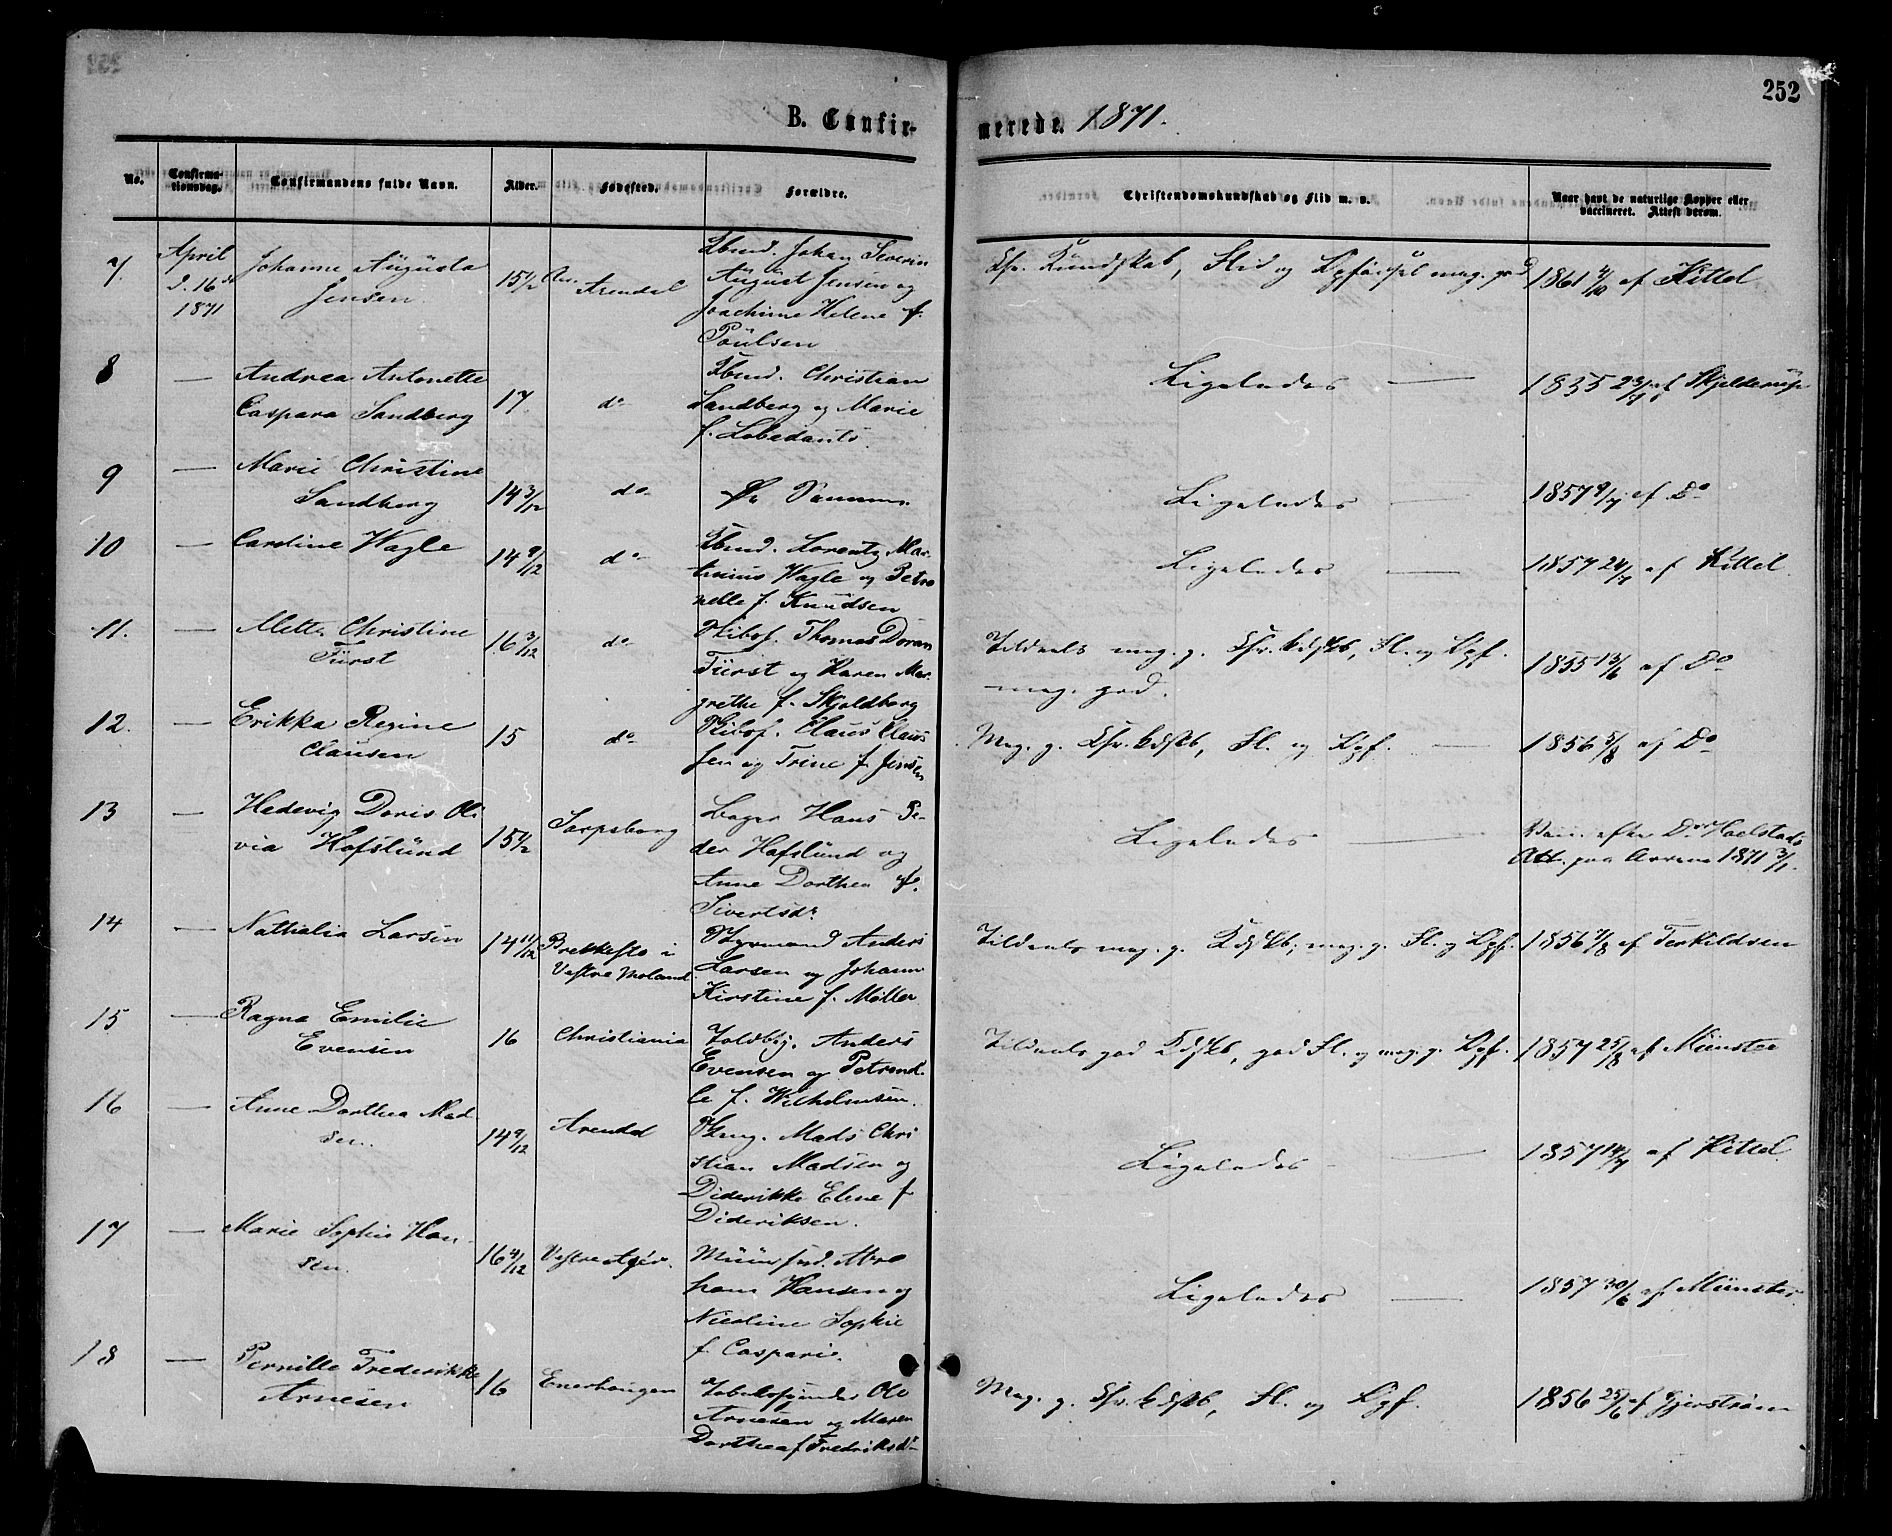 252
B. Confirmerede. 1871.
No. Confirmationsdag. Confirmandens fulde Navn. Alder. Fødested. Forældre. Christendomskundskab og Flid m. v. Naar havt de naturlige Kopper eller vaccineret. Attest derom.
7. April d. 16de 1871 Johanne Augusta Jensen 15 1/2 Aar Arendal Johan Severin August Jensen og Joachime Helene f. Poulsen Chr. Kundskab, Flid og Opførsel meg. god 1861 4/10 af Kittel
8 — Andrea Antonette Caspara Sandberg 17 do Christian Sandberg og Marie f. Ligeledes — af Skjelderup
9 — Marie Christine Sandberg 14 3/12 do De Samme Ligeledes — 1857 af Do
10 — Caroline Wagle 14 9/12 do Lorentz Martinius Wagle og Petronelle f. Knudsen Ligeledes — 1857 24/7 af Kittel
11. — Mette Christine Fürst 16 3/12 do Thomas Doran Fürst og Karen Margrethe f. Skjoldborg Tildeels meg. g. Chr. Kdskb, Fl. og Opf. meg. god. 1855 13/6 af Do
12. — Erikka Regine Clausen 15 do Claus Claussen og Trine f. Jensen Meg. g. Chr. Kdskb, Fl. og Opf. — 1856 5/8 af Do
13 — Hedevig Doris Olivia Hafslund 15 1/2 Sarpsborg Bager Hans Peder Hafslund og Anne Dorthea f. Sivertsdr Ligeledes — Att. 1871 3/1.
14 — Nathalia Larsen 14 11/12 Brekkestø i Vestre Moland Anders Larsen og Johanne Kirstine f. Møller Tildeels meg. g. Kdskb, meg. g. Fl. og Opf. 1856 af Terkildsen
15 — Ragna Emilie Evensen 16 Christiania Toldbtj. Anders Evensen og Petronelle f. Wilhelmsen. Tildeels god Kdskb, god Fl. og meg. g. Opf. 1857 25/8 af Münster
16 — Anne Dorthea Madsen. 14 9/12 Arendal Mads Christian Madsen og Diderikke Elene f. Dideriksen. Ligeledes — 1857 14/7 af Kittel
17 — Marie Sophie Hansen. 16 4/12 Hansen og Nicoline Sophie f. Casparie. Ligeledes — 1857 30/6 af Münster
18 — Pernille Frederikke Arnesen 16 Enerhaugen Ole Arnesen og Maren Dorthea f. Fredriksdr Meg. g. Chr. Kdskb, Fl. og Opf. 1856 25/6 af Gjerstrøm